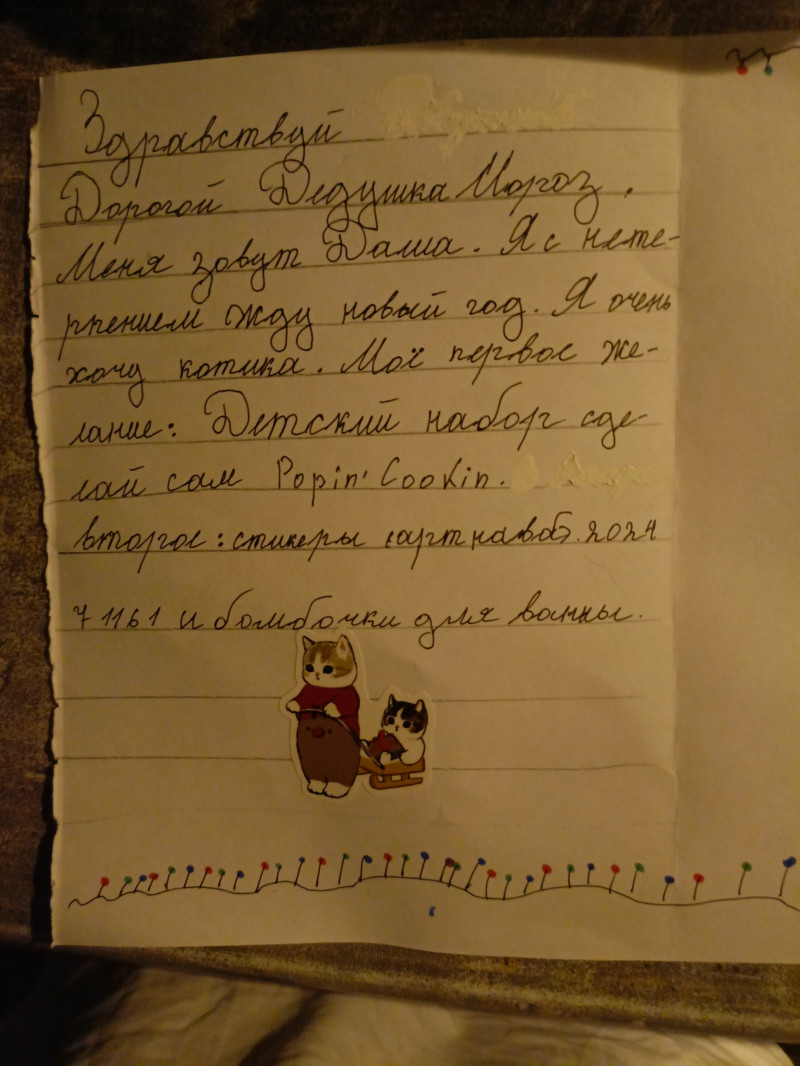 Здравствуй
Дорогой Дедушка Мороз.
Меня зовут Даша. Я с нете-
рпением жду новый год. Я очень
хочу котика. Моё первое же-
лание: Детский набор сде-
лай сам Popin' Cookin.
второе: стикеры 2024
71161 и бомбочки для ванны.